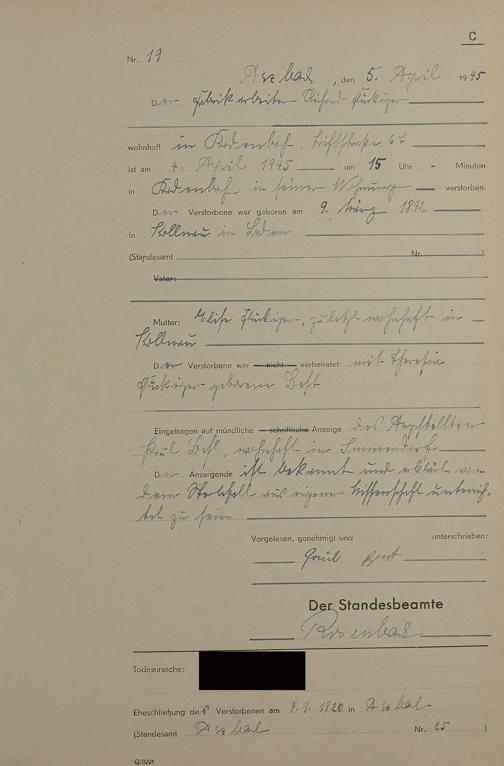 C
Nr. 19
Arzbach, den 5. April 1945
Der Fabrikarbeiter Richard Flückiger
wohnhaft in Kadenbach,
ist am 4. April 1945 um 15 Uhr - Minuten
in Kadenbach in seiner Wohnung verstorben.
Der Verstorbene war geboren am 9. März 1892
in Kollnau in Baden
(Standesamt Nr. )
Vater:
Mutter: Elise Flückiger, zuletzt wohnhaft in
Kollnau
Der Verstorbene war nicht verheiratet mit Theresia
Flückiger geborene Best
Eingetragen auf mündliche schriftliche Anzeige des Angestellten
Paul Best, wohnhaft in Immendorf
Der Anzeigende ist bekannt und erklärt von
dem Sterbefall aus eigener Wissenschaft unterrich-
tet zu sein
Vorgelesen, genehmigt und unterschrieben:
Paul Best
Der Standesbeamte
Todesursache:
Eheschließung des Verstorbenen am 8.9.1920 in Arzbach
(Standesamt Arzbach Nr. 25 )